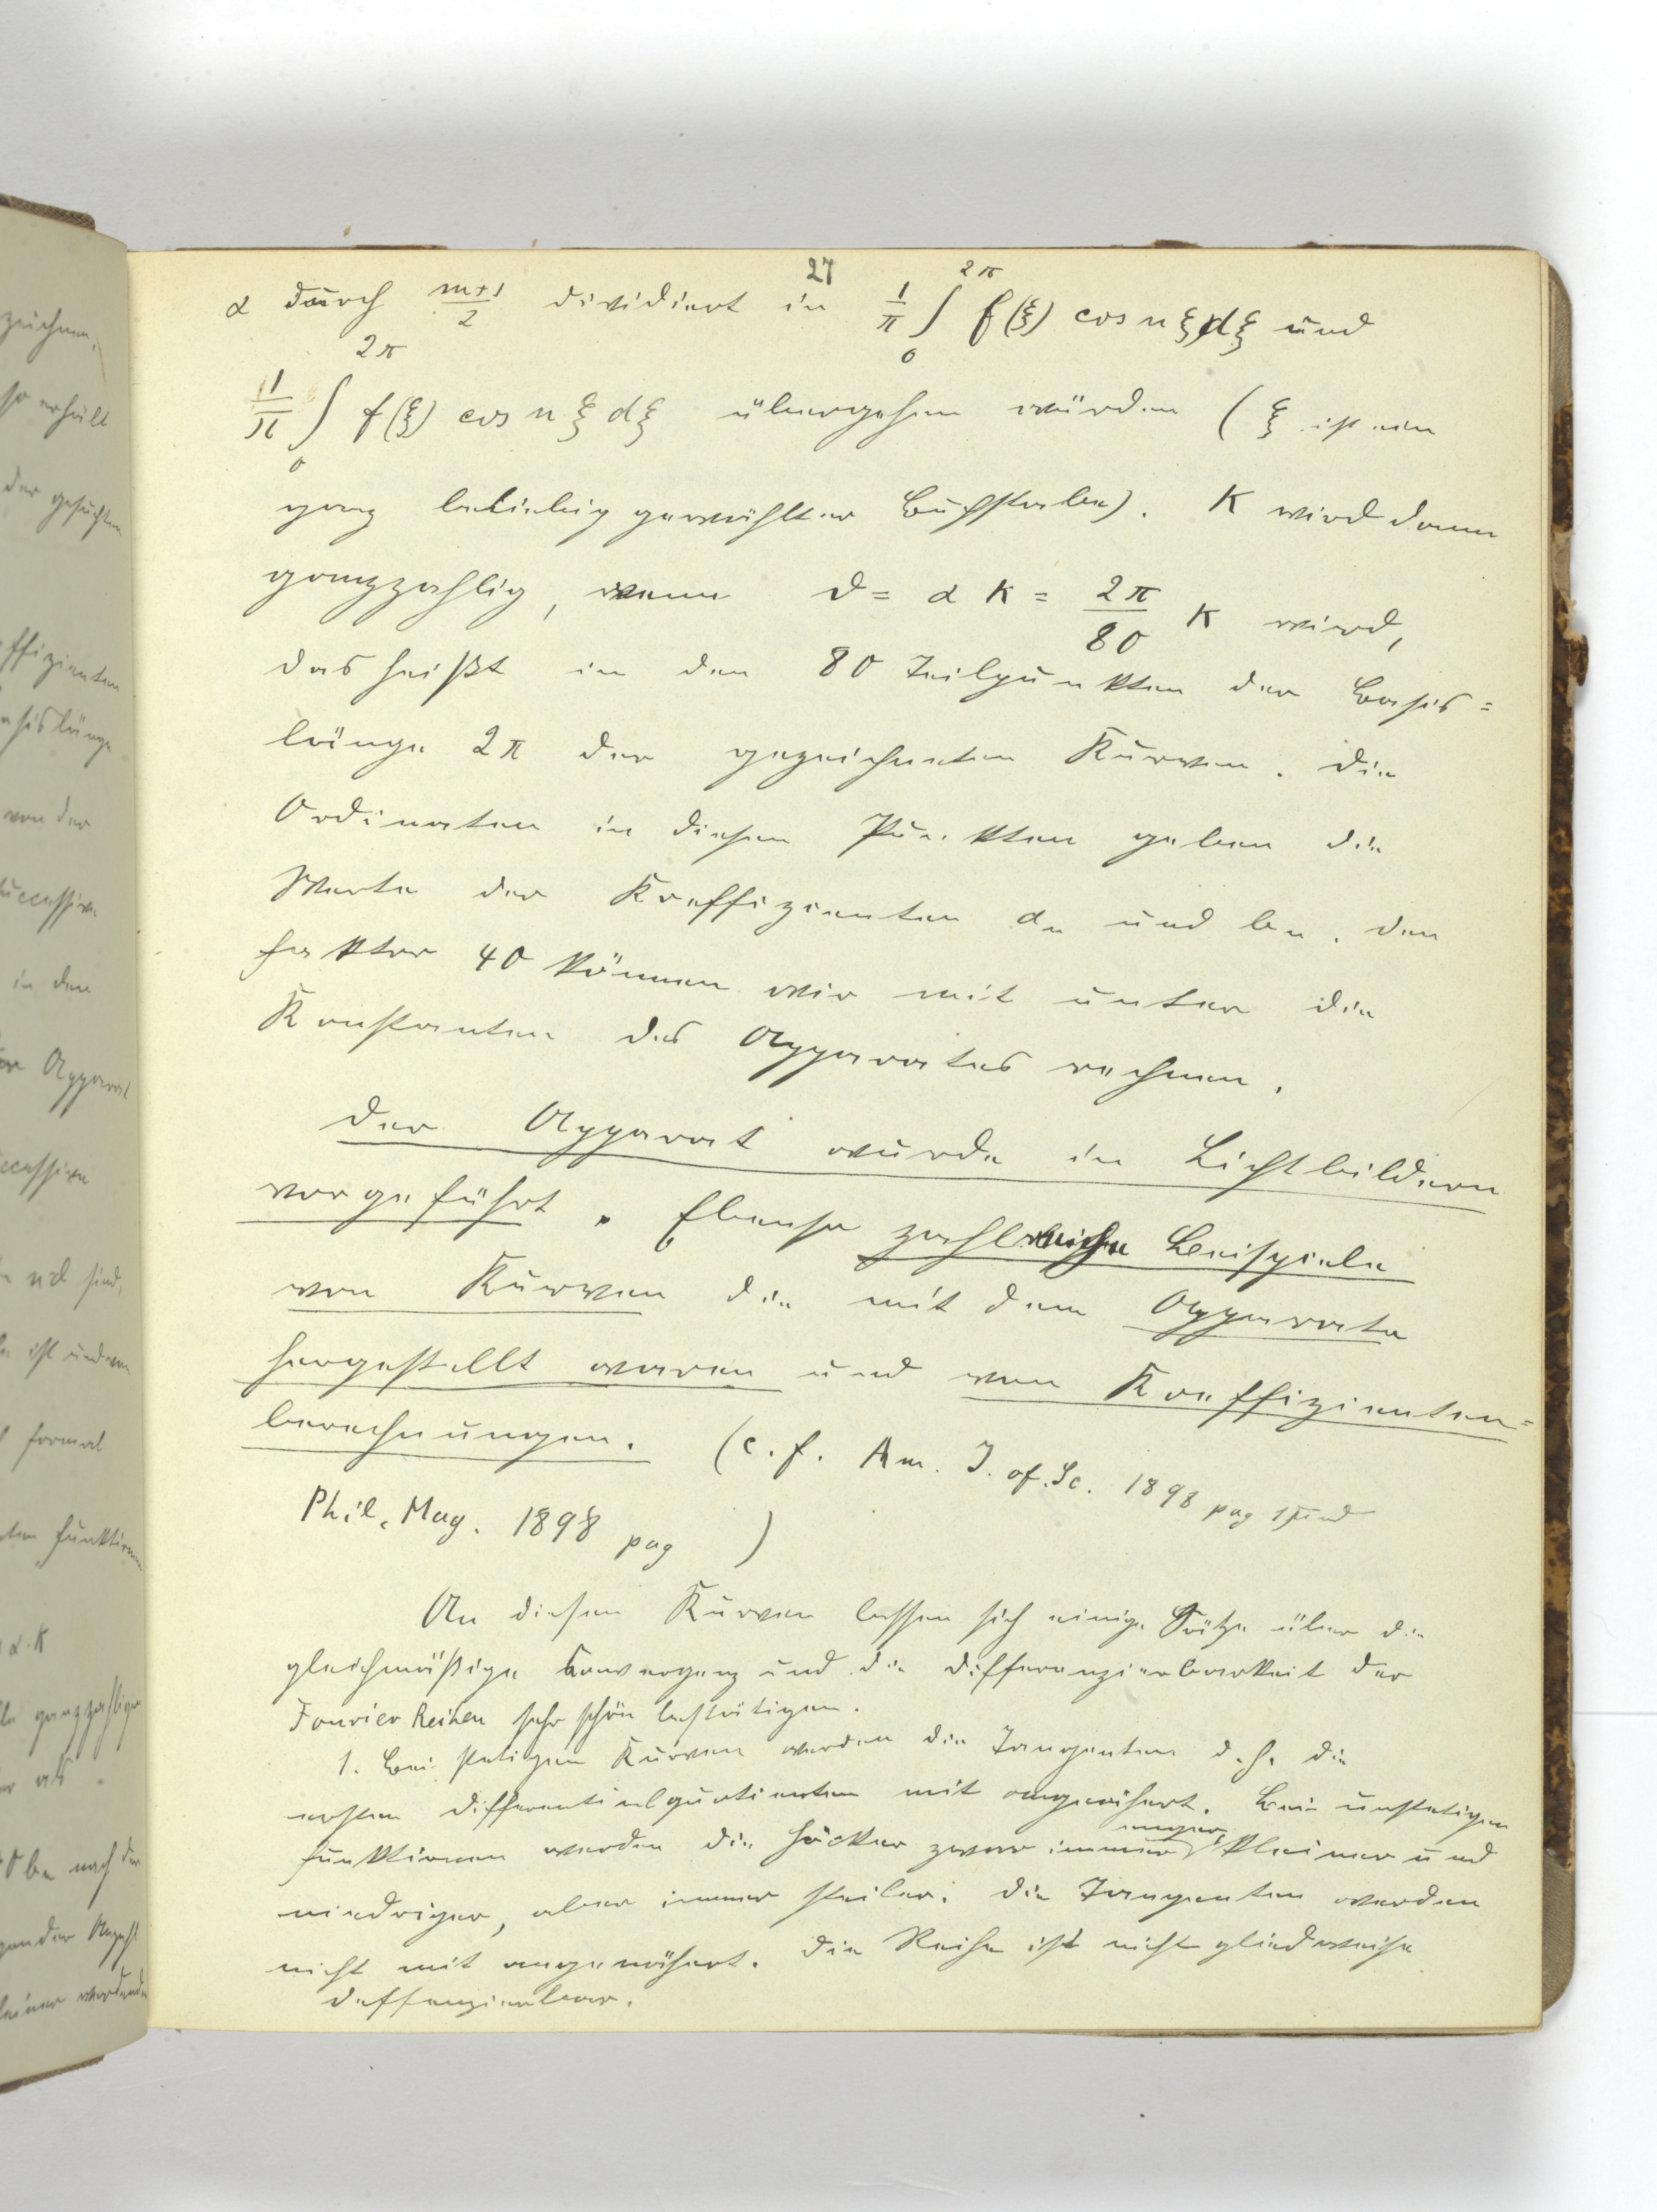 27
α durch m+1/2 dividiert in 1/π ∫₀^2π f(ξ) cos n ξ dξ und
1/π ∫₀^2π f(ξ) cos n ξ dξ übergehen würden (ξ ist ein
ganz beliebig gewählter Buchstabe). K wird dann
ganzzahlig, wenn ϑ = α K = 2π/80 K wird,
das heißt in den 80 Teilpunkten der Basis=
länge 2π der gezeichneten Kurven. Die
Ordinaten in diesen Punkten geben die
Werte der Koeffizienten an und bn. Den
Faktor 40 können wir mit unter die
Konstanten des Apparates rechnen.
Der Apparat wurde in Lichtbildern
vorgeführt. Ebenso zahlreiche Beispiele
von Kurven die mit dem Apparate
hergestellt waren und von Koeffizienten=
berechnungen. (c.f. Am. J. of. Sc. 1898 pag 1 und
Phil. Mag. 1898 pag )
An diesen Kurven lassen sich einige Sätze über die
gleichmäßige Konvergenz und die Differenzierbarkeit der
Fourier Reihen sehr schön bestätigen.
1. Bei stetigen Kurven werden die Tangenten d.h. die
ersten Differentialquotienten mit angenähert. Bei unstetigen
Funktionen werden die Höcker zwar immer enger, kleiner und
niedriger, aber immer steiler. Die Tangenten werden
nicht mit angenähert. Die Reihe ist nicht gliedweise
deffenzierbar.
zeichnen,
so erhält
der gesuchten
ffizienten
asislänge
von der
uccessive
in den
Apparat
ccessive
sind,
ist und von
formal
ten Funktionen
α.K
ganzzahligen
als
bn nach den
gender Anzahl
kleiner werdende